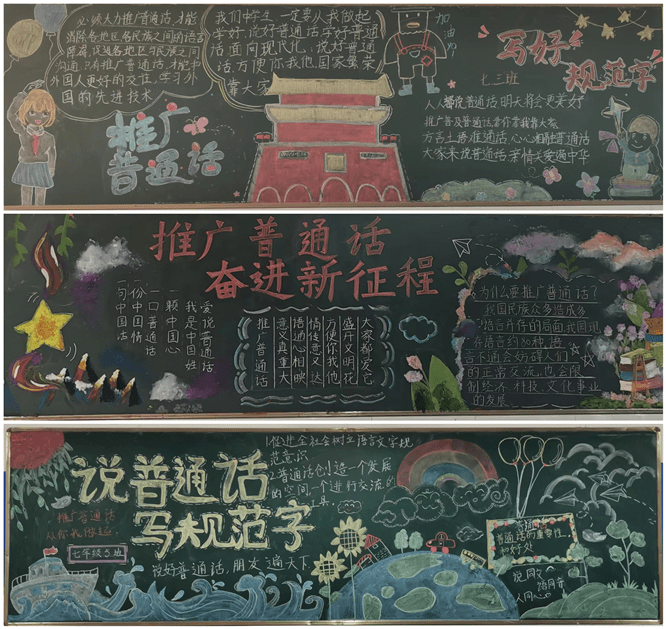 必须大力推广普通话,才能
消除各地区各民族之间的语言
障碍,促进各地区各民族之间
沟通,只有推广普通话,才能中
外国人更好的交往,学习外
国的先进技术
推广
普通话
我们中学生,一定要从我做起
学好,说好普通话,学好普通
话,面向现代化,说好普通
话,方便你我他,国家繁荣
靠大家
加油
写好
规范字
七三班
人人都说普通话,明天将会更美好
大家来说普通话,亲情友爱遍中华
推广普通话
奋进新征程
爱说普通话
我是中国娃
一颗中国心
一口普通话
一份中国情
一句中国话
大家都爱它
盛开文明花
方便你我他
情传意又达
语通心相映
意义真重大
推广普通话
为什么要推广普通话?
我国民族众多造成多
种语言并存的局面,我国现
有语言约80种,语
言不通会妨碍人们
的正常交流,也会限
制经济、科技、文化事业
的发展
说普通话
写规范字
推广普通话
从你我做起
七年级5班
说好普通话,朋友遍天下
1.促进全社会树立语言文字规
范意识
2.普通话创造一个发展
的空间,一个进行交流的
工具。
普通话的重要性
和好处
说同文
语同音
人同心